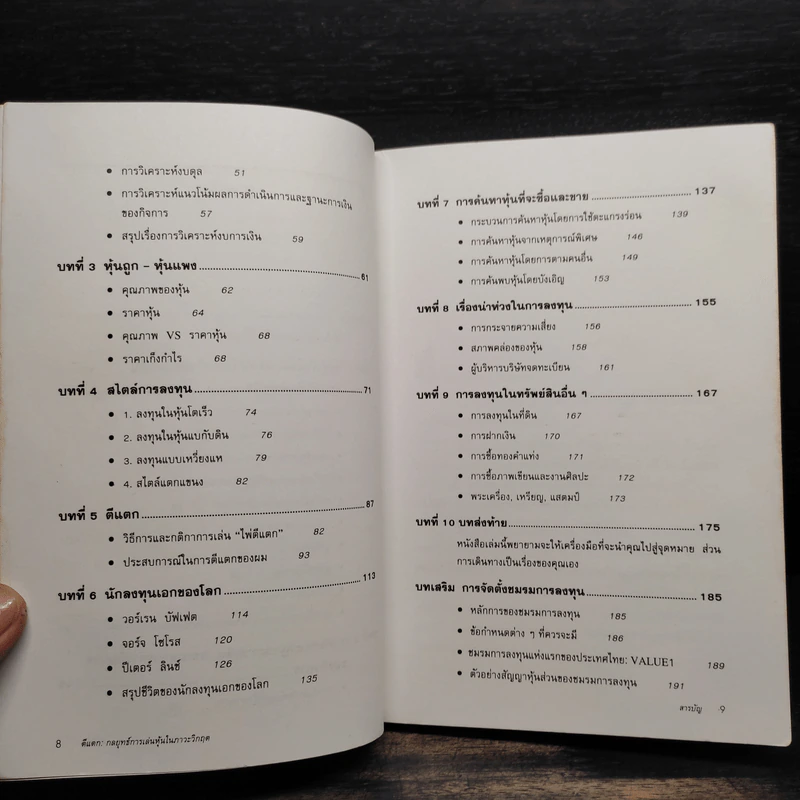 • การวิเคราะห์งบดุล 51
• การวิเคราะห์แนวโน้มผลการดำเนินการและฐานะการเงิน
ของกิจการ 57
• สรุปเรื่องการวิเคราะห์งบการเงิน 59
บทที่ 3 หุ้นถูก - หุ้นแพง 61
• คุณภาพของหุ้น 62
• ราคาหุ้น 64
• คุณภาพ VS ราคาหุ้น 68
• ราคาเก็งกำไร 68
บทที่ 4 สไตล์การลงทุน 71
• 1. ลงทุนในหุ้นโตเร็ว 74
• 2. ลงทุนในหุ้นแบกับดิน 76
• 3. ลงทุนแบบเหวี่ยงแห 79
• 4. สไตล์แตกแขนง 82
บทที่ 5 ตีแตก 87
• วิธีการและกติกาการเล่น "ไพ่ตีแตก" 82
• ประสบการณ์ในการตีแตกของผม 93
บทที่ 6 นักลงทุนเอกของโลก 113
• วอร์เรน บัฟเฟต 114
• จอร์จ โซโรส 120
• ปีเตอร์ ลินช์ 126
• สรุปชีวิตของนักลงทุนเอกของโลก 135
8 ตีแตก: กลยุทธ์การเล่นหุ้นในภาวะวิกฤต
บทที่ 7 การค้นหาหุ้นที่จะซื้อและขาย 137
• กระบวนการค้นหาหุ้นโดยการใช้ตะแกรงร่อน 139
• การค้นหาหุ้นจากเหตุการณ์พิเศษ 146
• การค้นหาหุ้นโดยการตามคนอื่น 149
• การค้นพบหุ้นโดยบังเอิญ 153
บทที่ 8 เรื่องน่าห่วงในการลงทุน 155
• การกระจายความเสี่ยง 156
• สภาพคล่องของหุ้น 158
• ผู้บริหารบริษัทจดทะเบียน 161
บทที่ 9 การลงทุนในทรัพย์สินอื่น ๆ 167
• การลงทุนในที่ดิน 167
• การฝากเงิน 170
• การซื้อทองคำแท่ง 171
• การซื้อภาพเขียนและงานศิลปะ 172
• พระเครื่อง, เหรียญ, แสตมป์ 173
บทที่ 10 บทส่งท้าย 175
หนังสือเล่มนี้พยายามจะให้เครื่องมือที่จะนำคุณไปสู่จุดหมาย ส่วน
การเดินทางเป็นเรื่องของคุณเอง
บทเสริม การจัดตั้งชมรมการลงทุน 185
• หลักการของชมรมการลงทุน 185
• ข้อกำหนดต่าง ๆ ที่ควรจะมี 186
• ชมรมการลงทุนแห่งแรกของประเทศไทย: VALUE1 189
• ตัวอย่างสัญญาหุ้นส่วนของชมรมการลงทุน 191
สารบัญ 9